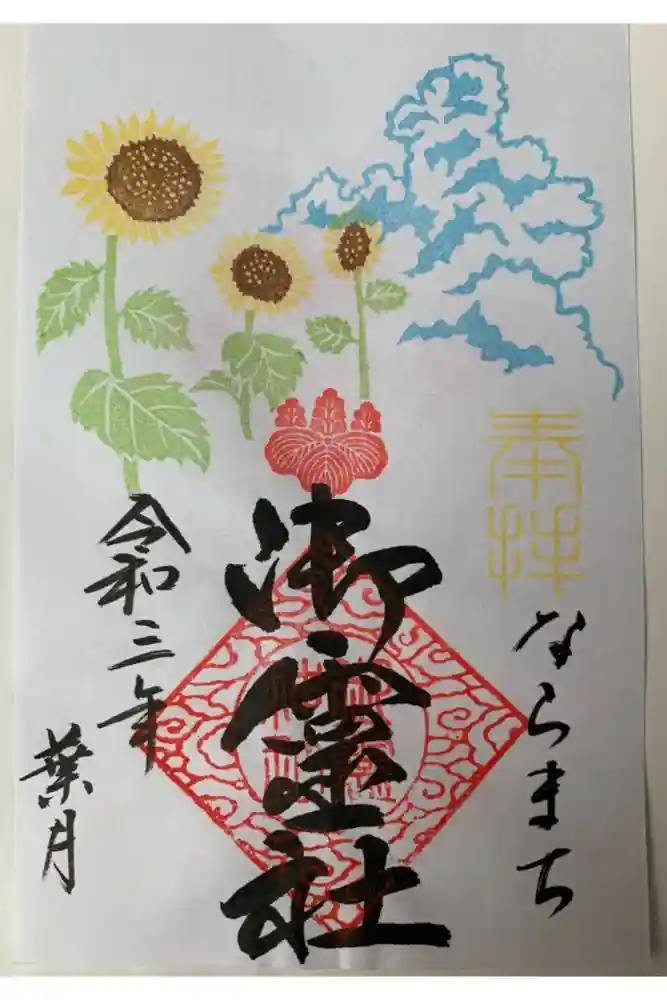 奉拝
ならまち
御靈社
令和三年
葉月